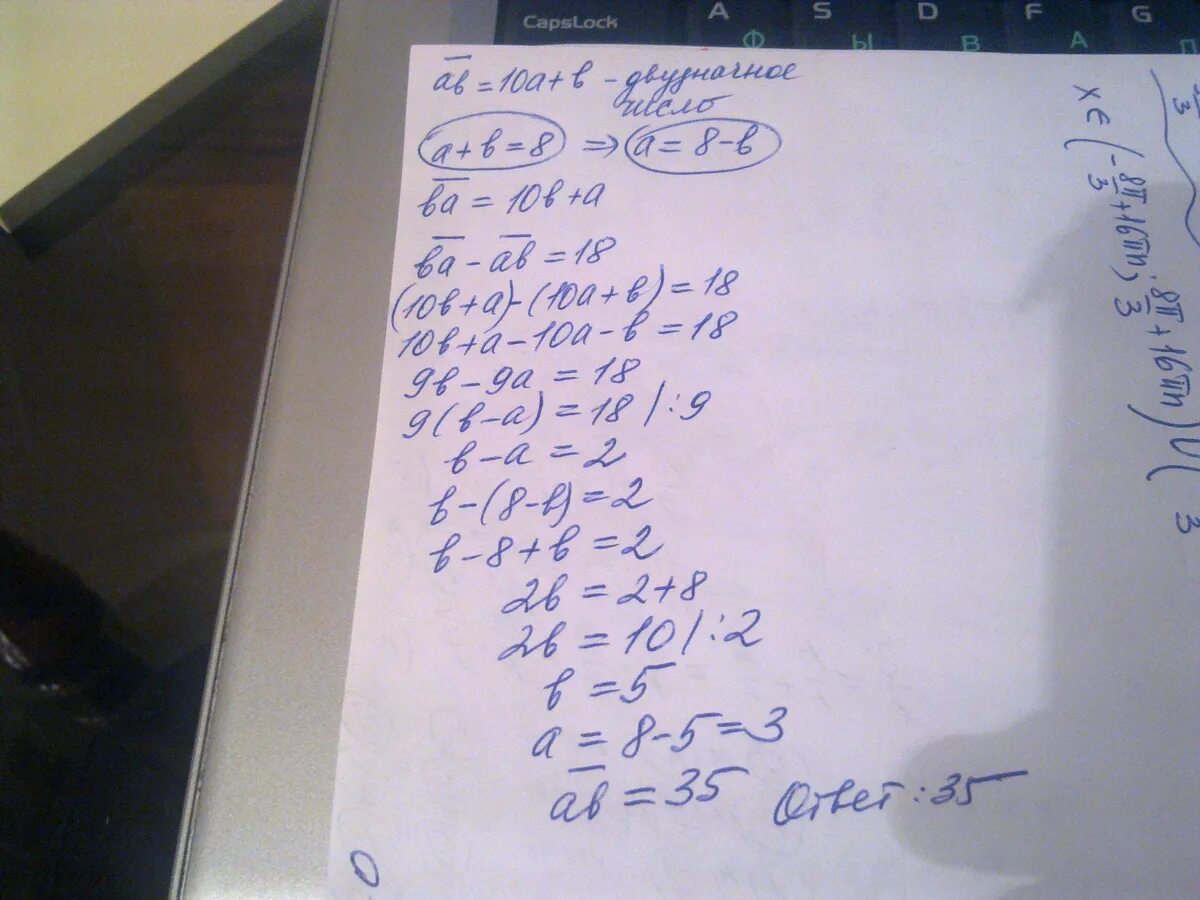 CapsLock A S D F G
Ф Ы В А П
a̅b̅ = 10a + b – двузначное
число
a + b = 8 ⇒ a = 8 - b
b̅a̅ = 10b + a
b̅a̅ - a̅b̅ = 18
(10b + a) - (10a + b) = 18
10b + a - 10a - b = 18
9b - 9a = 18
9(b - a) = 18 | : 9
b - a = 2
b - (8 - b) = 2
b - 8 + b = 2
2b = 2 + 8
2b = 10 | : 2
b = 5
a = 8 - 5 = 3
a̅b̅ = 35 Ответ: 35
x ∈ (-8π/3 + 16πn; 8π/3 + 16πn) ∪ (
3
3